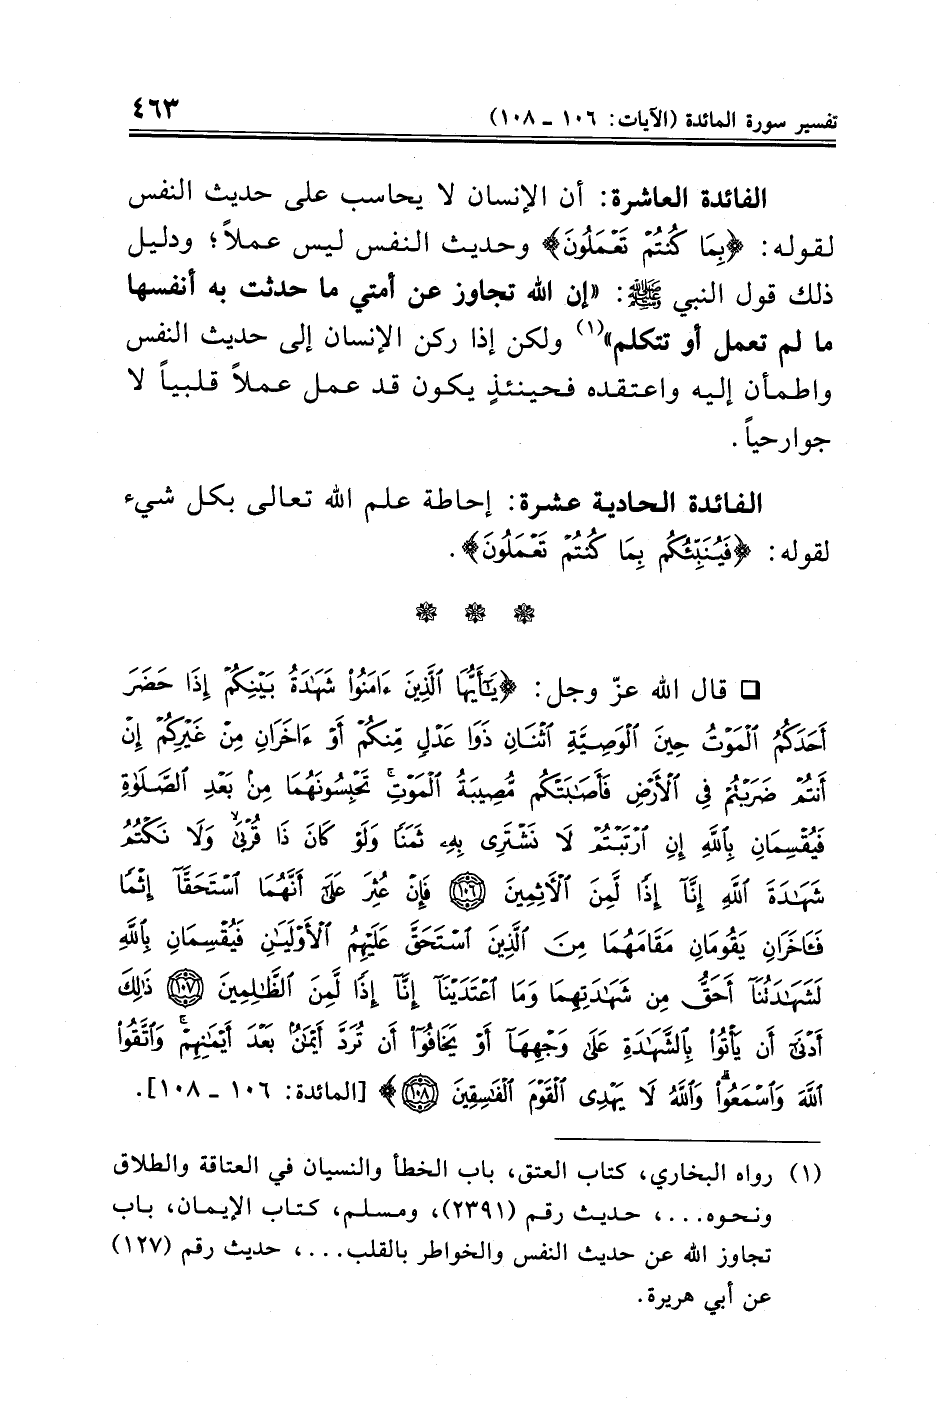 تفسير سورة المائدة (الآيات: ١٠٦ ـ ١٠٨)
٤٦٣
الفائدة العاشرة: أن الإنسان لا يحاسب على حديث النفس
لقوله: ﴿بِمَا كُنتُمْ تَعْمَلُونَ﴾ وحديث النفس ليس عملاً؛ ودليل
ذلك قول النبي ﷺ: «إن الله تجاوز عن أمتي ما حدثت به أنفسها
ما لم تعمل أو تتكلم»(١) ولكن إذا ركن الإنسان إلى حديث النفس
واطمأن إليه واعتقده فحينئذٍ يكون قد عمل عملاً قلبياً لا
جوارحياً.
الفائدة الحادية عشرة: إحاطة علم الله تعالى بكل شيء
لقوله: ﴿فَيُنَبِّئُكُم بِمَا كُنتُمْ تَعْمَلُونَ﴾.
❁ ❁ ❁
❑ قال الله عزّ وجل: ﴿يَٰٓأَيُّهَا ٱلَّذِينَ ءَامَنُوا۟ شَهَٰدَةُ بَيْنِكُمْ إِذَا حَضَرَ
أَحَدَكُمُ ٱلْمَوْتُ حِينَ ٱلْوَصِيَّةِ ٱثْنَانِ ذَوَا عَدْلٍ مِّنكُمْ أَوْ ءَاخَرَانِ مِنْ غَيْرِكُمْ إِنْ
أَنتُمْ ضَرَبْتُمْ فِى ٱلْأَرْضِ فَأَصَٰبَتْكُم مُّصِيبَةُ ٱلْمَوْتِ ۚ تَحْبِسُونَهُمَا مِنۢ بَعْدِ ٱلصَّلَوٰةِ
فَيُقْسِمَانِ بِٱللَّهِ إِنِ ٱرْتَبْتُمْ لَا نَشْتَرِى بِهِۦ ثَمَنًا وَلَوْ كَانَ ذَا قُرْبَىٰ ۙ وَلَا نَكْتُمُ
شَهَٰدَةَ ٱللَّهِ إِنَّآ إِذًا لَّمِنَ ٱلْـَٔاثِمِينَ ١٠٦ فَإِنْ عُثِرَ عَلَىٰٓ أَنَّهُمَا ٱسْتَحَقَّآ إِثْمًا
فَـَٔاخَرَانِ يَقُومَانِ مَقَامَهُمَا مِنَ ٱلَّذِينَ ٱسْتَحَقَّ عَلَيْهِمُ ٱلْأَوْلَيَٰنِ فَيُقْسِمَانِ بِٱللَّهِ
لَشَهَٰدَتُنَآ أَحَقُّ مِن شَهَٰدَتِهِمَا وَمَا ٱعْتَدَيْنَآ إِنَّآ إِذًا لَّمِنَ ٱلظَّٰلِمِينَ ١٠٧ ذَٰلِكَ
أَدْنَىٰٓ أَن يَأْتُوا۟ بِٱلشَّهَٰدَةِ عَلَىٰ وَجْهِهَآ أَوْ يَخَافُوٓا۟ أَن تُرَدَّ أَيْمَٰنٌۢ بَعْدَ أَيْمَٰنِهِمْ ۗ وَٱتَّقُوا۟
ٱللَّهَ وَٱسْمَعُوا۟ ۗ وَٱللَّهُ لَا يَهْدِى ٱلْقَوْمَ ٱلْفَٰسِقِينَ ١٠٨﴾ [المائدة: ١٠٦ ـ ١٠٨].
(١) رواه البخاري، كتاب العتق، باب الخطأ والنسيان في العتاقة والطلاق
ونحوه...، حديث رقم (٢٣٩١)، ومسلم، كتاب الإيمان، باب
تجاوز الله عن حديث النفس والخواطر بالقلب...، حديث رقم (١٢٧)
عن أبي هريرة.